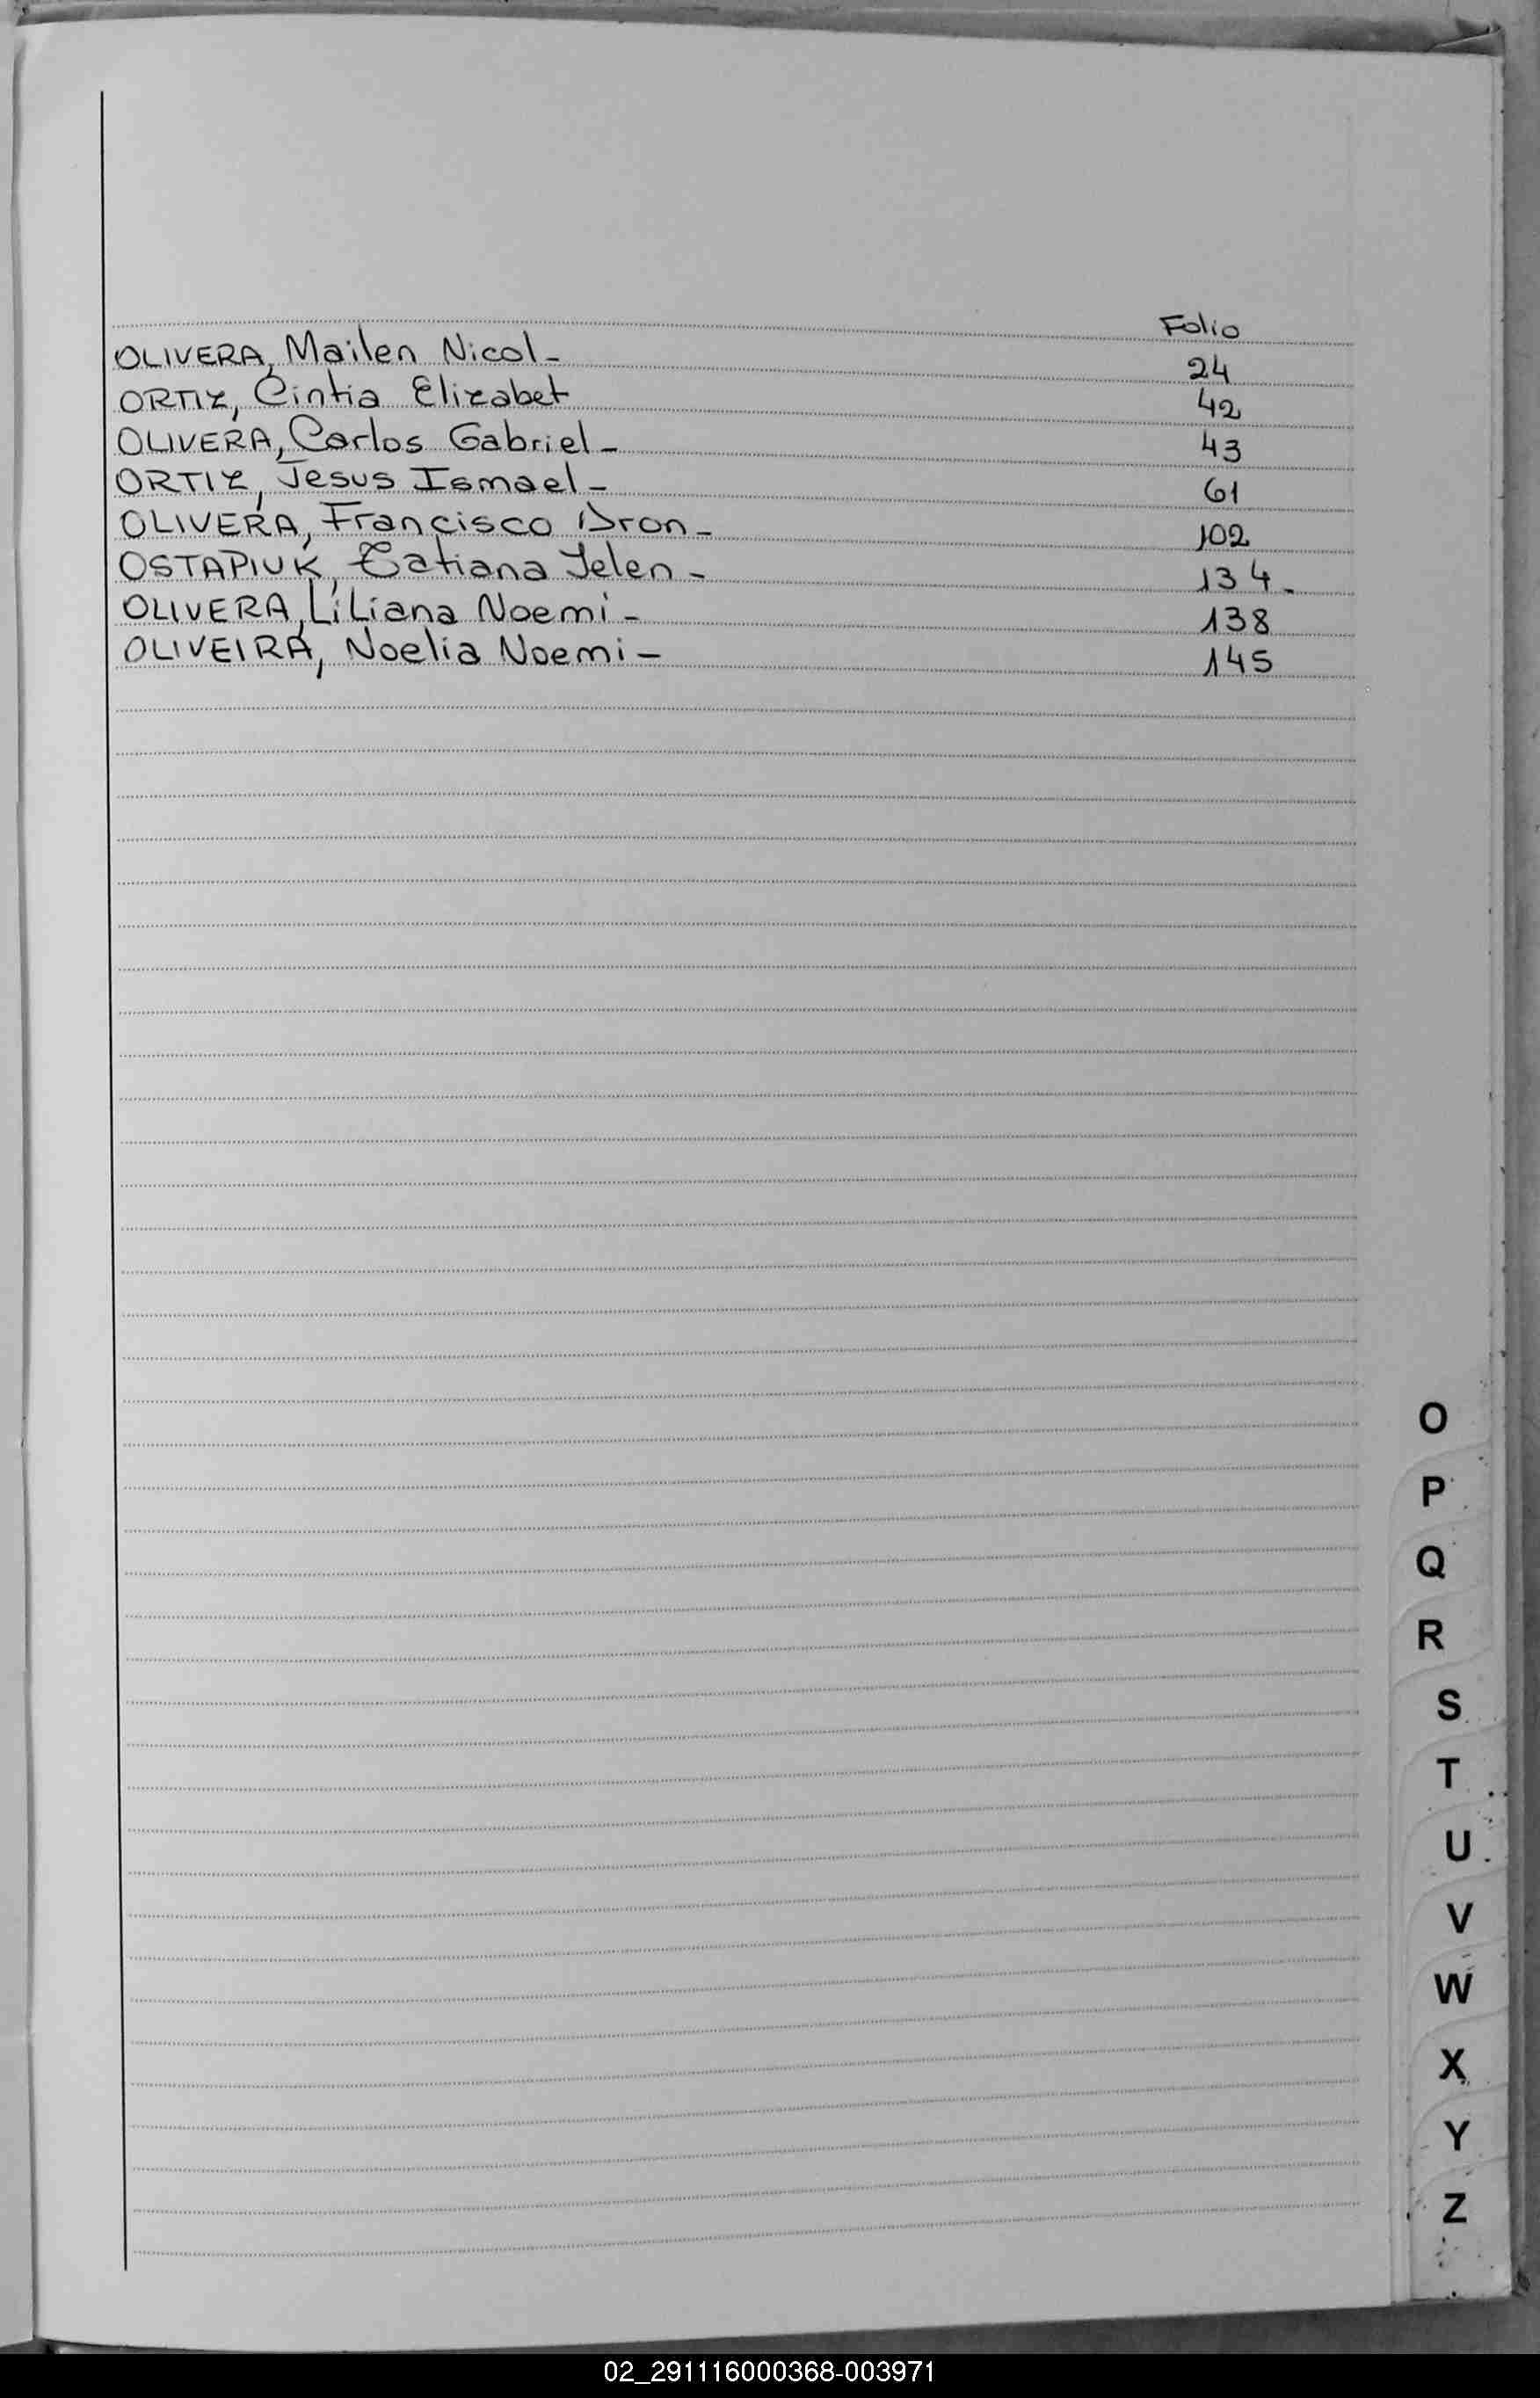 Folio
OLIVERA, Mailen Nicol - 24
ORTIZ, Cintia Elizabet 42
OLIVERA, Carlos Gabriel - 43
ORTIZ, Jesus Ismael - 61
OLIVERA, Francisco - 102
OSTAPIUK, Tatiana Jelen - 134 -
OLIVERA, Liliana Noemi - 138
OLIVEIRA, Noelia Noemi - 145
O
P
Q
R
S
T
U
V
W
X
Y
Z
02_291116000368-003971